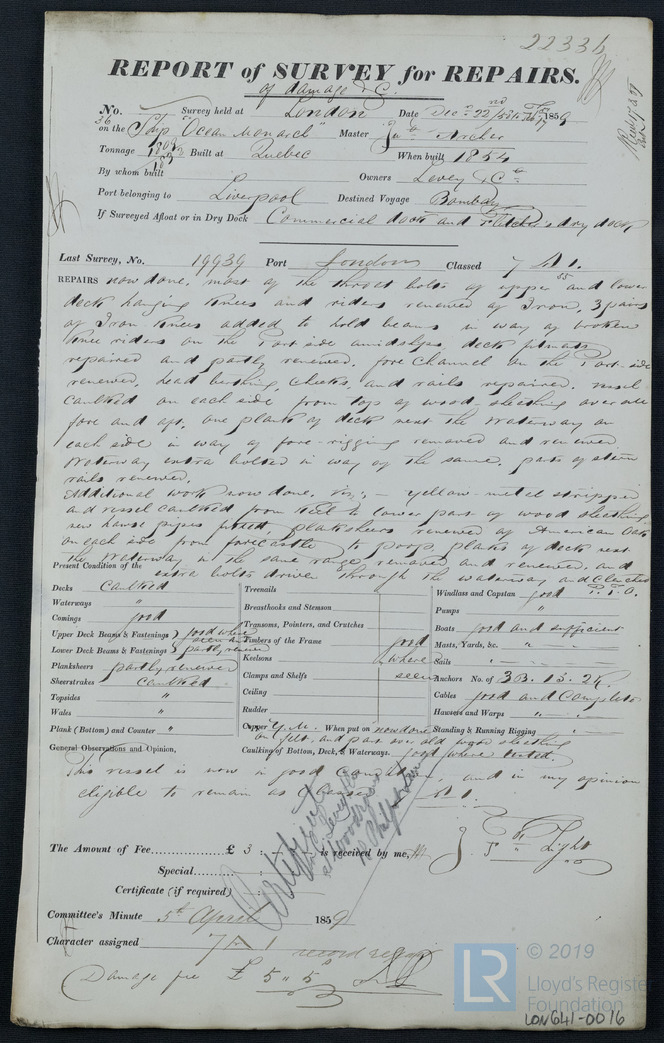 22336
REPORT of SURVEY for REPAIRS.
of damage &c.
No. Survey held at London Date Dec 22 1859
36
on the Ship "Ocean Monarch" Master Archer
Tonnage Built at Quebec When built 1854
By whom built Owners Levey & Co
Port belonging to Liverpool Destined Voyage Bombay
If Surveyed Afloat or in Dry Dock Commercial dock and Fletcher's dry dock
Last Survey, No. 19939 Port London Classed 7 A 1.
55
REPAIRS now done, most of the throat bolts of upper and lower
deck hanging knees and rides renewed of Iron, 3 pairs
of Iron knees added to hold beams in way of broken
knee riders on the Port side amidships, deck
repaired and partly renewed, fore channel on the Port-side
renewed, head berthing, cheeks, and rails repaired. vessel
caulked on each side from top of wood-sheathing over all
fore and aft, one plank of deck next the waterway on
each side in way of fore-rigging removed and renewed
Waterway extra bolted in way of the same. parts of stern
rails renewed.
Additional work now done. viz: - yellow-metal stripped
and vessel caulked from keel to lower part of wood sheathing
new hawse pipes planksheers renewed of American Oak
on each side from forecastle to poop, planks of deck next
the Waterway in the same range removed and renewed. and
extra bolts driven through the waterway and clenched
P.T.O.
Present Condition of the
Decks Caulked
Waterways "
Comings good
Upper Deck Beams & Fastenings } good where seen and
Lower Deck Beams & Fastenings } partly renewed
Planksheers partly renewed
Sheerstrakes caulked
Topsides "
Wales "
Plank (Bottom) and Counter "
Treenails
Breasthooks and Stemson
Transoms, Pointers, and Crutches
Timbers of the Frame good
Keelsons where
Clamps and Shelfs seen
Ceiling
Rudder
Copper Y.M. When put on now done
on felt, and part over old wood sheathing
Caulking of Bottom, Deck, & Waterways. good where tested.
Windlass and Capstan good
Pumps "
Boats good and sufficient
Masts, Yards, &c. "
Sails "
Anchors No. of 3B. 1S. 2K.
Cables good and Complete
Hawsers and Warps "
Standing & Running Rigging "
General Observations and Opinion,
This vessel is now in good Condition, and in my opinion
eligible to remain as Classed A 1.
The Amount of Fee £ 3 : is received by me,
Light
Special
Certificate (if required)
Committee's Minute 5th April 1859
Character assigned 7 A 1
Damage fee £ 5 " 5
© 2019
LR Lloyd's Register
Foundation
LON641-0016